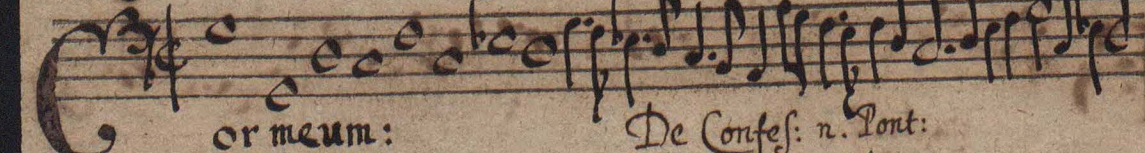 Cor meum: De Confeſ: n. Pont: